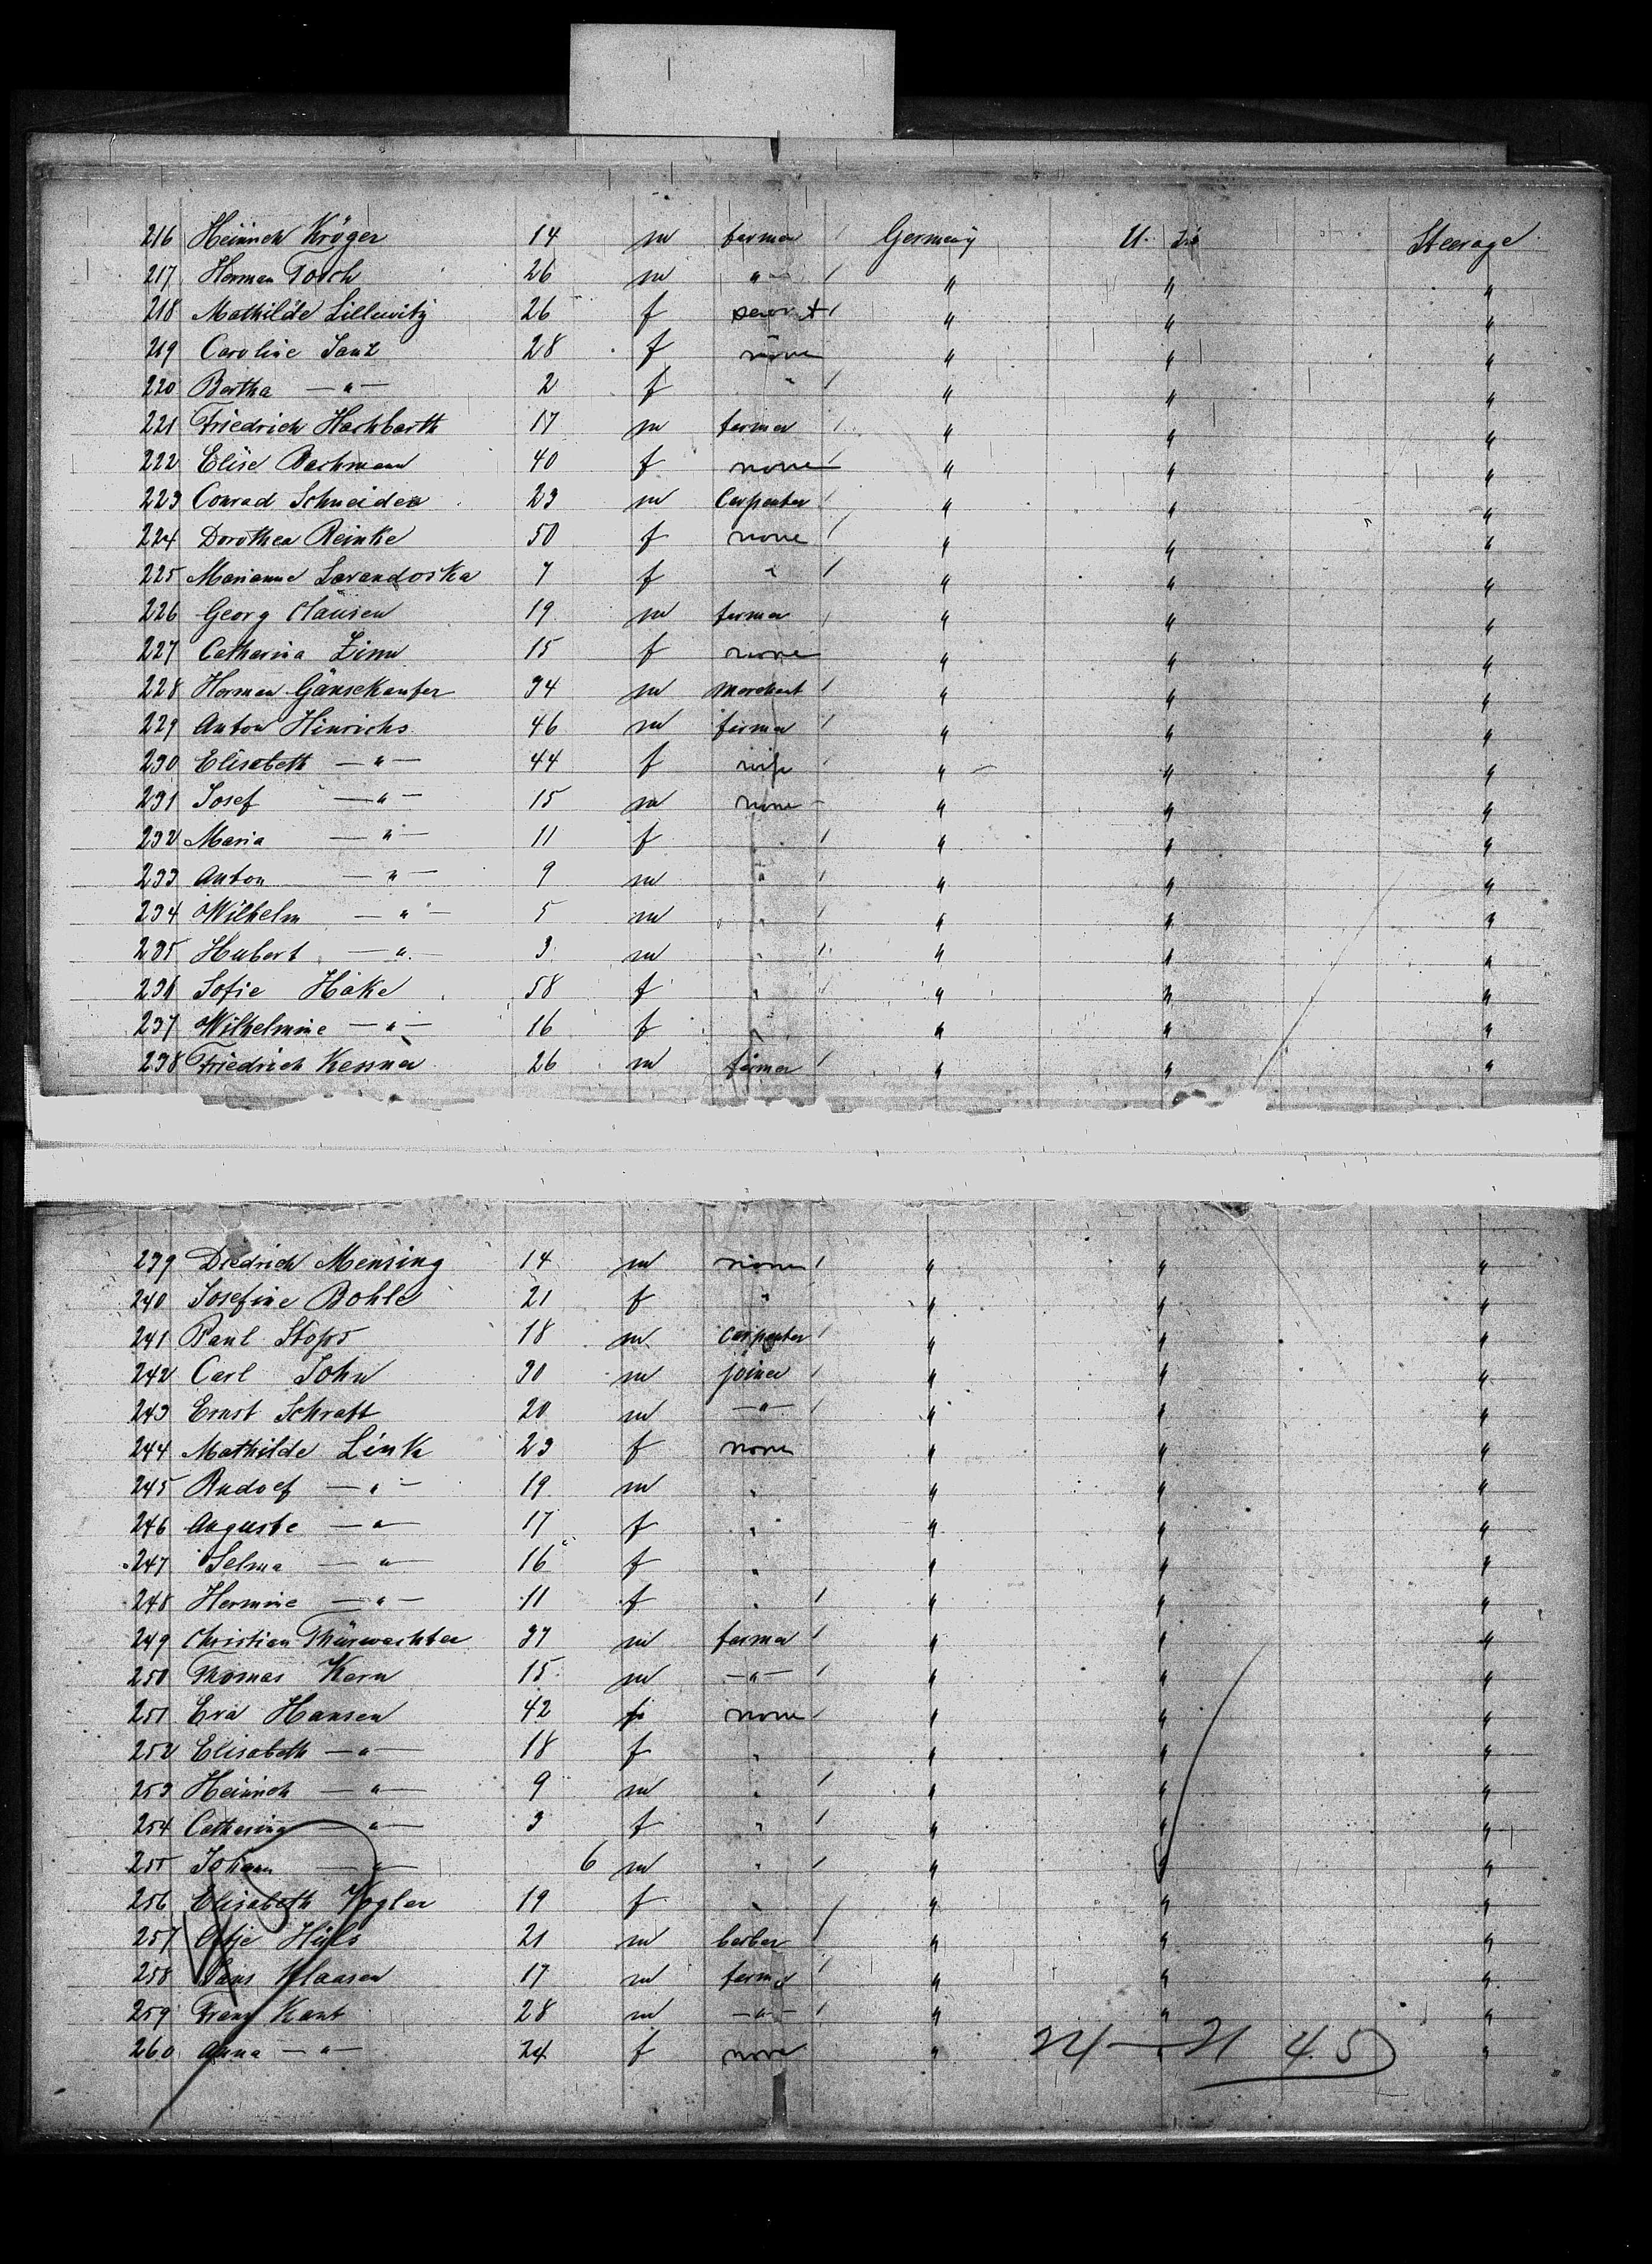 216 Heinrich Kröger 14 m farmer / Germany U. Steerage
217 Herman Tosch 26 m " / " " "
218 Mathilde Lillewitz 26 f servt / " " "
219 Caroline Janz 28 f none " " "
220 Bertha — " — 2 f " / " " "
221 Friedrich Hachbarth 17 m farmer / " " "
222 Elise Bachmann 40 f none / " " "
223 Conrad Schneider 23 m Carpenter / " " "
224 Dorothea Reinke 50 f none / " " "
225 Marianne Lavandoska 7 f " / " " "
226 Georg Clausen 19 m farmer / " " "
227 Catharina Zinn 15 f none " " "
228 Herman Gänsekanfer 34 m Merchant / " " "
229 Anton Hinrichs 46 m farmer / " " "
230 Elisabeth — " — 44 f wife / " " "
231 Josef — " — 15 m none " " "
232 Maria — " — 11 f " / " " "
233 Anton — " — 9 m " / " " "
234 Wilhelm — " — 5 m " / " " "
235 Hubert — " — 3 m " / " " "
236 Sofie Hake 58 f " / " " "
237 Wilhelmine — " — 16 f " " " "
238 Friedrich Kessner 26 m farmer / " " "
239 Diedrich Mensing 14 m none / " " "
240 Josefine Bohle 21 f " " " "
241 Paul Stops 18 m Carpenter / " " "
242 Carl John 30 m joiner / " " "
243 Ernst Schratt 20 m — " — / " " "
244 Mathilde Link 23 f none " " "
245 Rudolf — " — 19 m " " " "
246 Auguste — " — 17 f " " " "
247 Selma — " — 16 f " " " "
248 Hermine — " — 11 f " / " " "
249 Christian Thürwachter 37 m farmer / " " "
250 Thomas Kern 15 m — " — / " " "
251 Eva Hansen 42 f none / " " "
252 Elisabeth — " — 18 f " " " "
253 Heinrich — " — 9 m " / " " "
254 Catharina — " — 3 f " / " " "
255 Johann — " — 6 m " / " " "
256 Elisabeth Vogler 19 f " / " " "
257 Hüls 21 m barber / " " "
258 Hans Klaasen 17 m farmer / " " "
259 Franz Kant 28 m — " — / " " "
260 Anna — " — 24 f none " 24 — 21 45 "